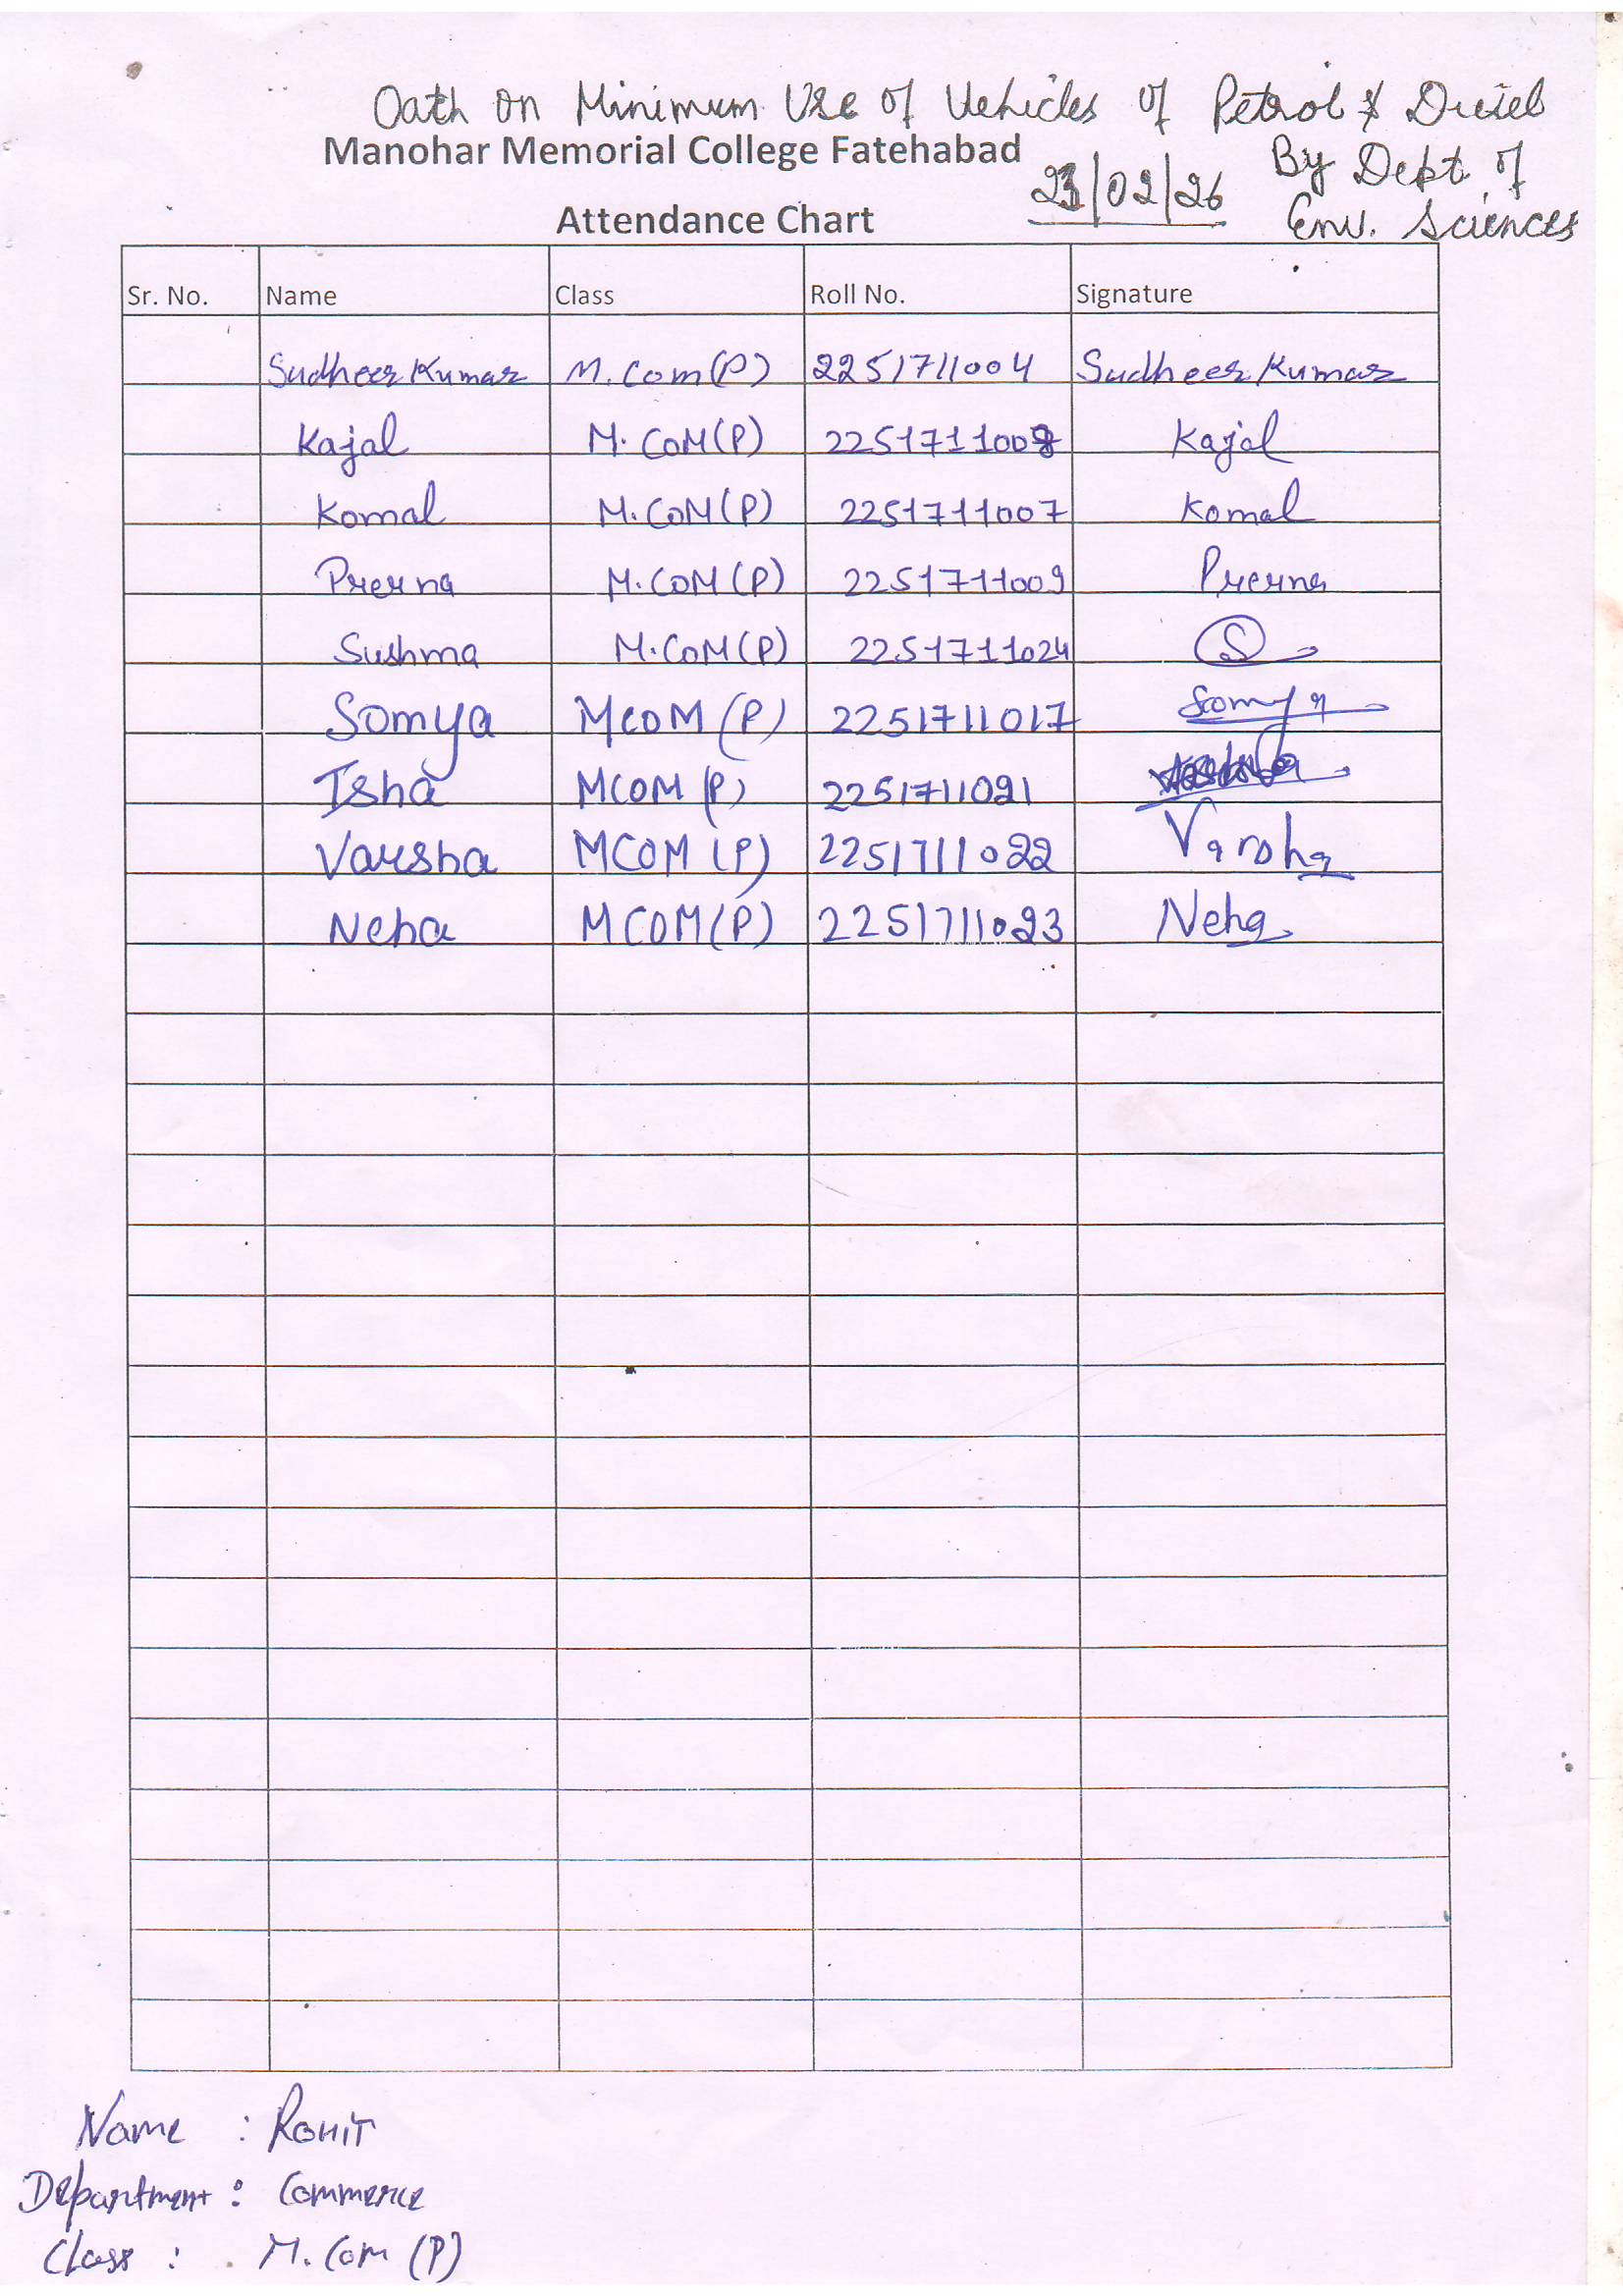 Oath on Minimum Use of Vehicles of Petrol & Diesel
Manohar Memorial College Fatehabad
23/02/26 By Dept. of
Attendance Chart Env. Sciences
Sr. No. Name Class Roll No. Signature
Sudheer Kumar M.Com(P) 2251711004 Sudheer Kumar
Kajal M.COM(P) 2251711008 Kajal
Komal M.COM(P) 2251711007 Komal
Prerna M.COM(P) 2251711009 Prerna
Sushma M.COM(P) 2251711024 S
Somya MCOM (P) 2251711017 Somya
Isha MCOM (P) 2251711021
Varsha MCOM (P) 2251711022 Varsha
Neha MCOM(P) 2251711023 Neha
Name : Rohit
Department : Commerce
Class : M.Com (P)